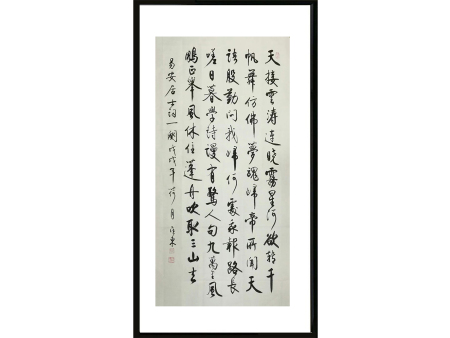 天接雲濤連曉霧星河欲轉千
帆舞仿佛夢魂歸帝所聞天
語殷勤問我歸何處我報路長
嗟日暮學詩漫有驚人句九萬里風
鵬正舉風休住蓬舟吹取三山去
易安居士詞一闋戊戌年荷月東